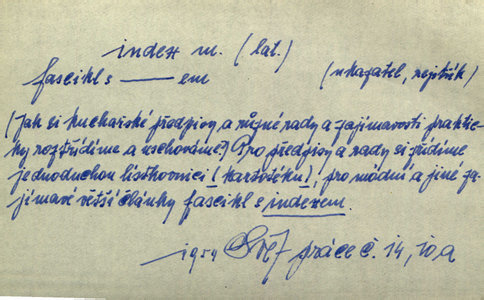 index m. (lat.)
fascikl s —— em (ukazatel, rejstřík)
(Jak si kuchařské předpisy a různé rady a zajímavosti praktic-
ky roztřídíme a uschováme?) Pro předpisy a rady si zřídíme
jednoduchou lístkovnici (kartotéku), pro módní a jiné za-
jímavé větší články fascikl s indexem.
1954 práce č. 14, 10,a